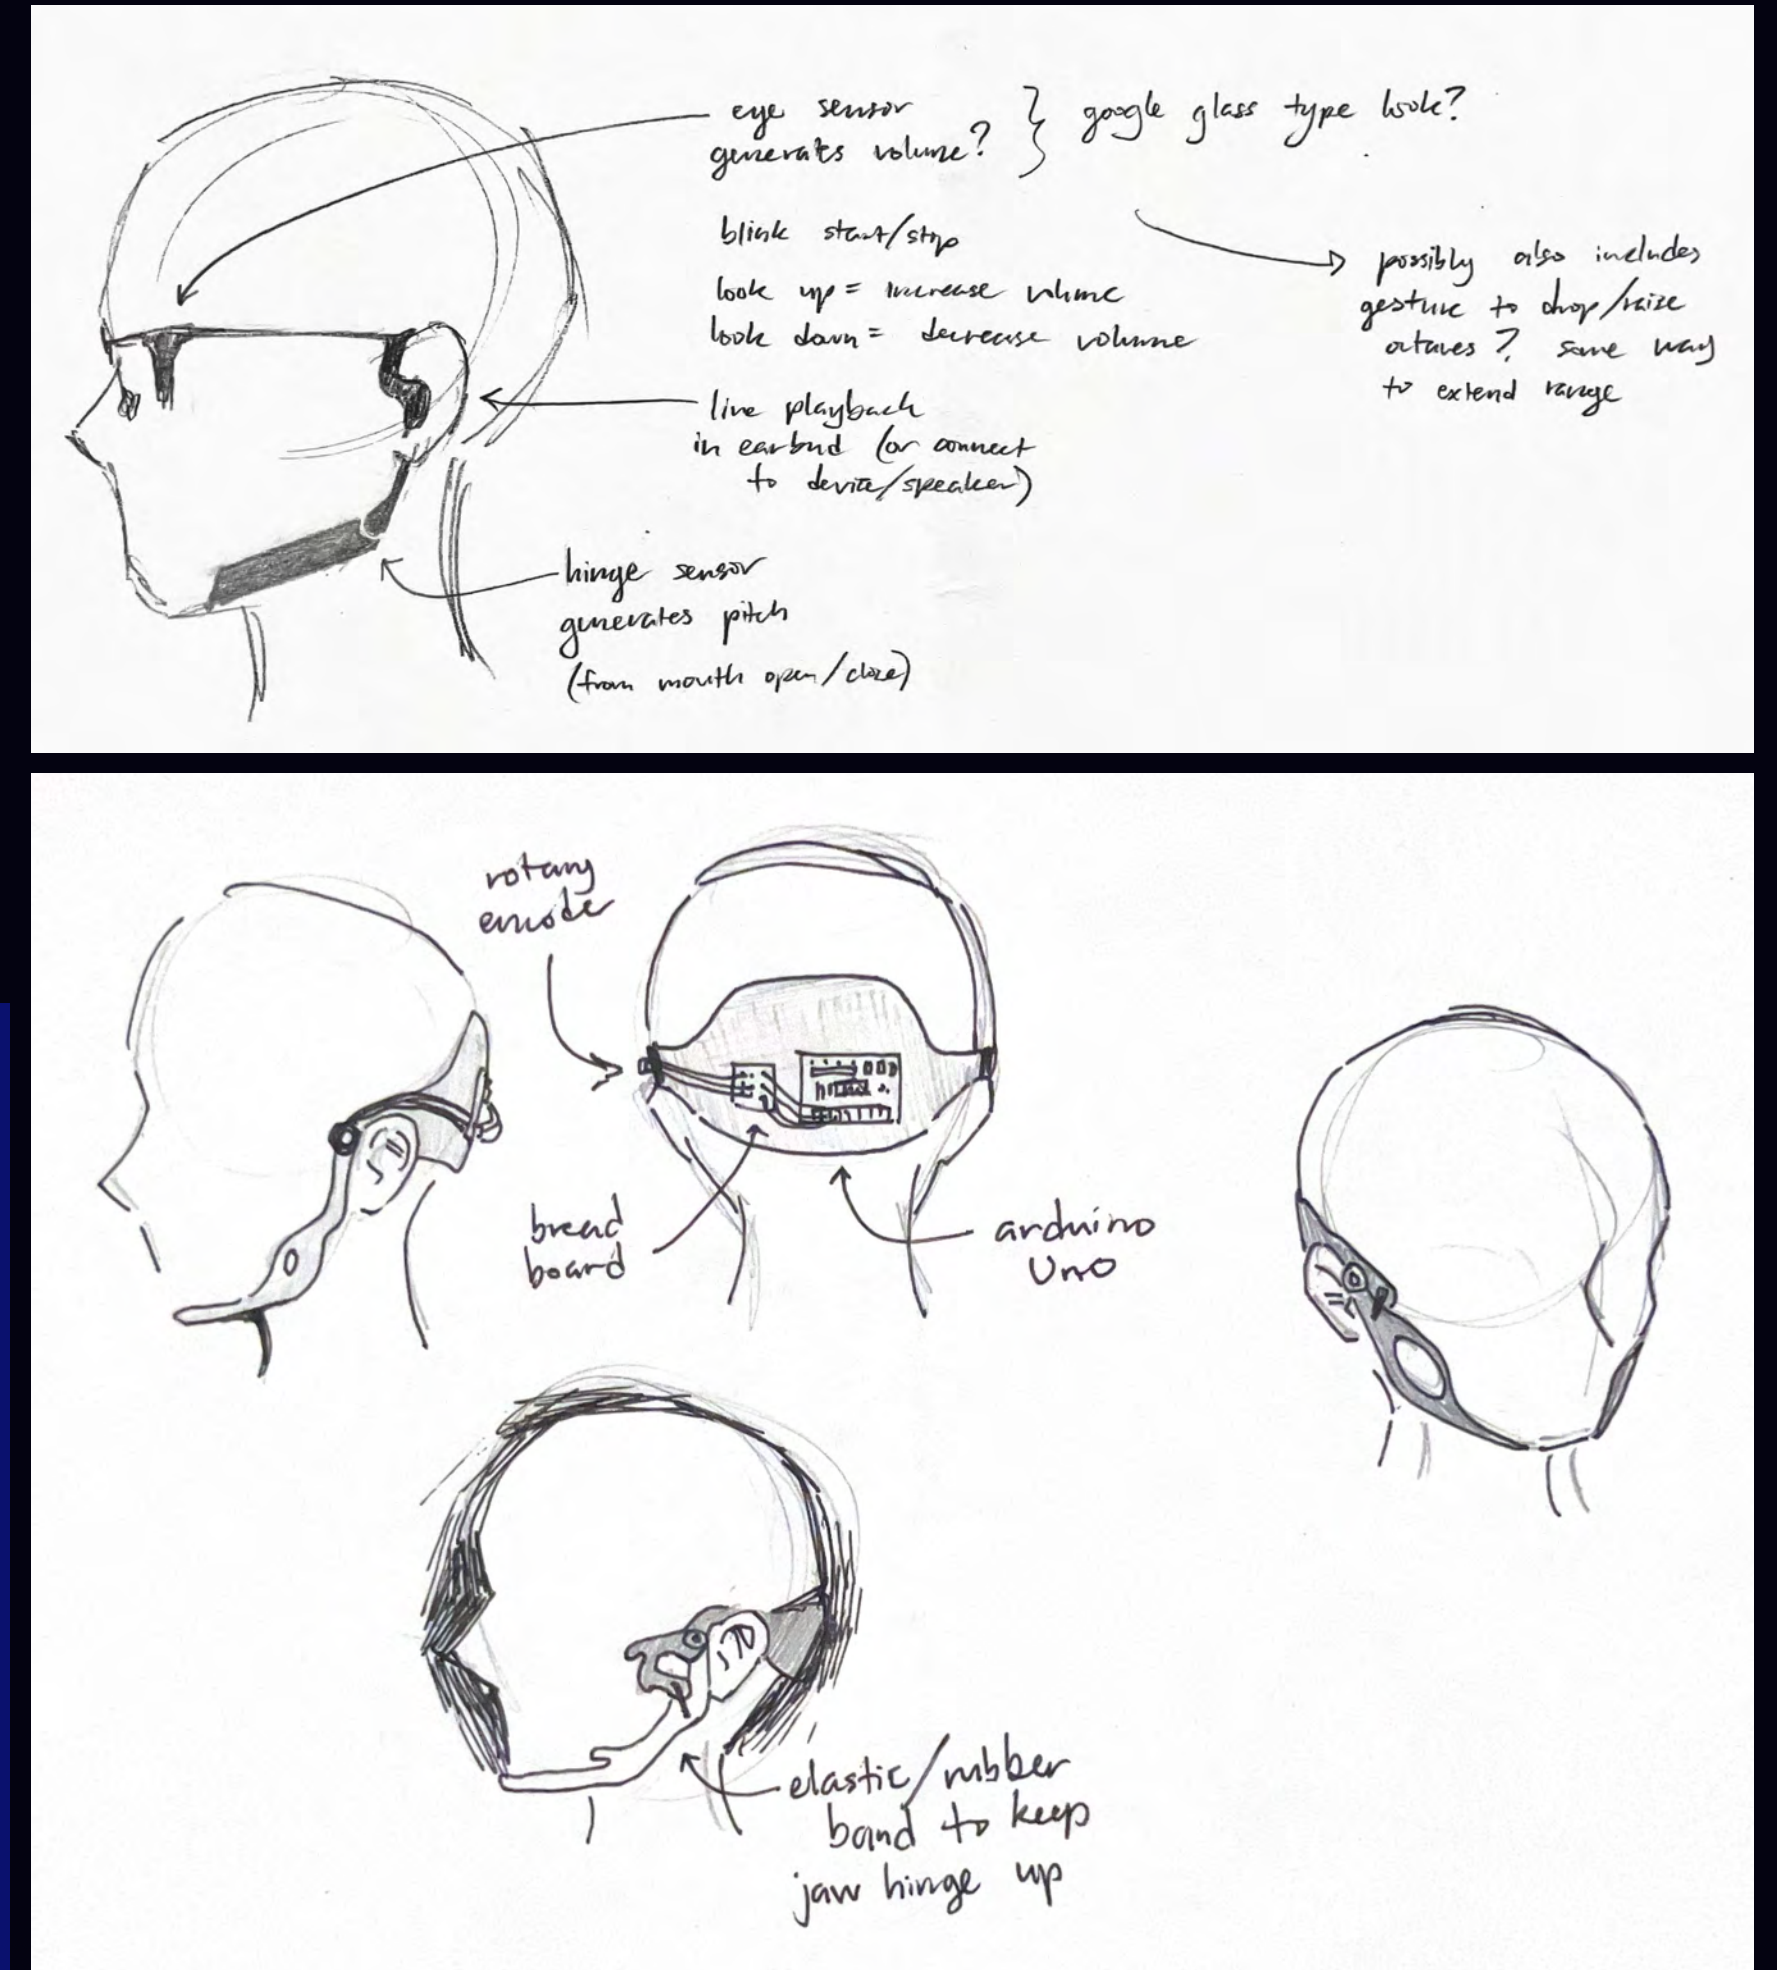 eye sensor
generates volume?
google glass type look?
blink start/stop
look up = increase volume
look down = decrease volume
possibly also includes
gesture to drop/raise
octaves? some way
to extend range
live playback
in earbud (or connect
to device/speaker)
hinge sensor
generates pitch
(from mouth open/close)
rotary
encoder
bread
board
arduino
Uno
elastic/rubber
band to keep
jaw hinge up